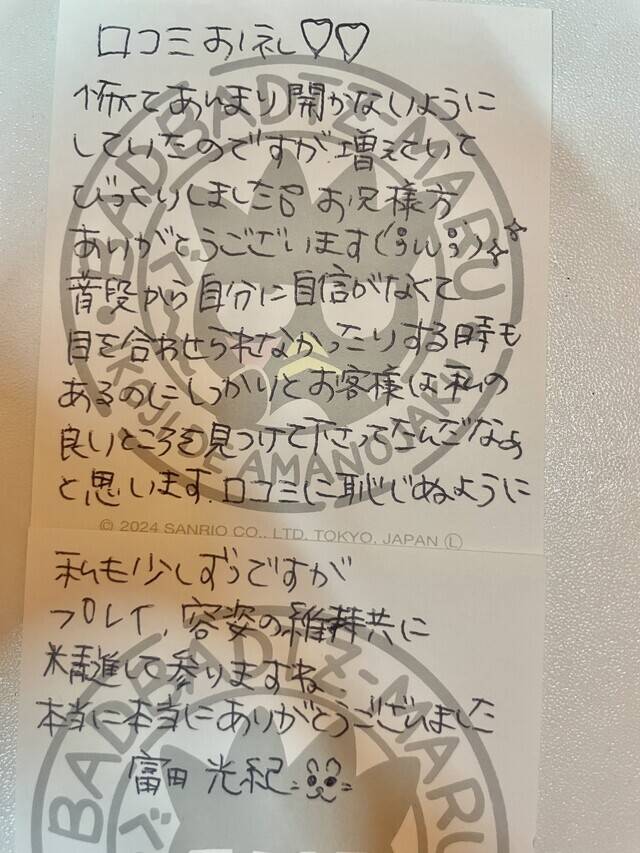 口コミお礼♡♡
怖くてあんまり開かないように
していたのですが増えていて
びっくりしました お兄様方
ありがとうございます
普段から自分に自信がなくて
目を合わせられなかったりする時も
あるのにしっかりとお客様は私の
良いところを見つけて下さってたんだなぁ
と思います.口コミに恥じぬように
© 2024 SANRIO CO., LTD. TOKYO, JAPAN Ⓛ
私も少しずつですが
プレイ、容姿の維持共に
精進して参りますね
本当に本当にありがとうございました
富田 光紀
BADBADTZ-MARU
KOJI DE AMANOJAKU
BADBADTZ-MARU